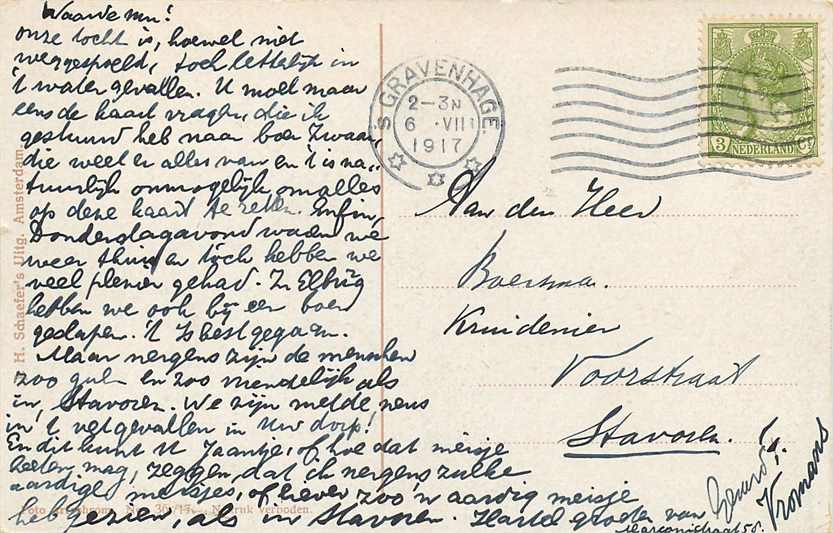 Waarde mr!
onze tocht is, hoewel niet
weggespoeld, toch letterlijk in
't water gevallen. U moet maar
eens de kaart vragen, die ik
gestuurd heb naar boer Zwaan,
die weet er alles van en 't is na-
tuurlijk onmogelijk om alles
op deze kaart te zetten. Enfin,
Donderdagavond waren we
weer thuis en toch hebben we
veel plezier gehad. In Elburg
hebben we ook bij een boer
geslapen. 't Is best gegaan.
Maar nergens zijn de menschen
zoo gul en zoo vriendelijk als
in Stavoren. We zijn met de neus
in 't vet gevallen in Uw dorp!
En dit kunt U Jaantje, of hoe dat meisje
heeten mag, zeggen, dat ik nergens zulke
aardige meisjes, of liever zoo'n aardig meisje
heb gezien, als in Stavoren. Hartel groeten van
Gerard
Vromans
Marconistraat 58.
's GRAVENHAGE.
2-3N
6 .VIII
1917
3 NEDERLAND Ct
Aan den Heer
Boersma.
Kruidenier
Voorstraat
Stavoren.
H. Schaefer's Uitg. Amsterdam
Nadruk verboden.